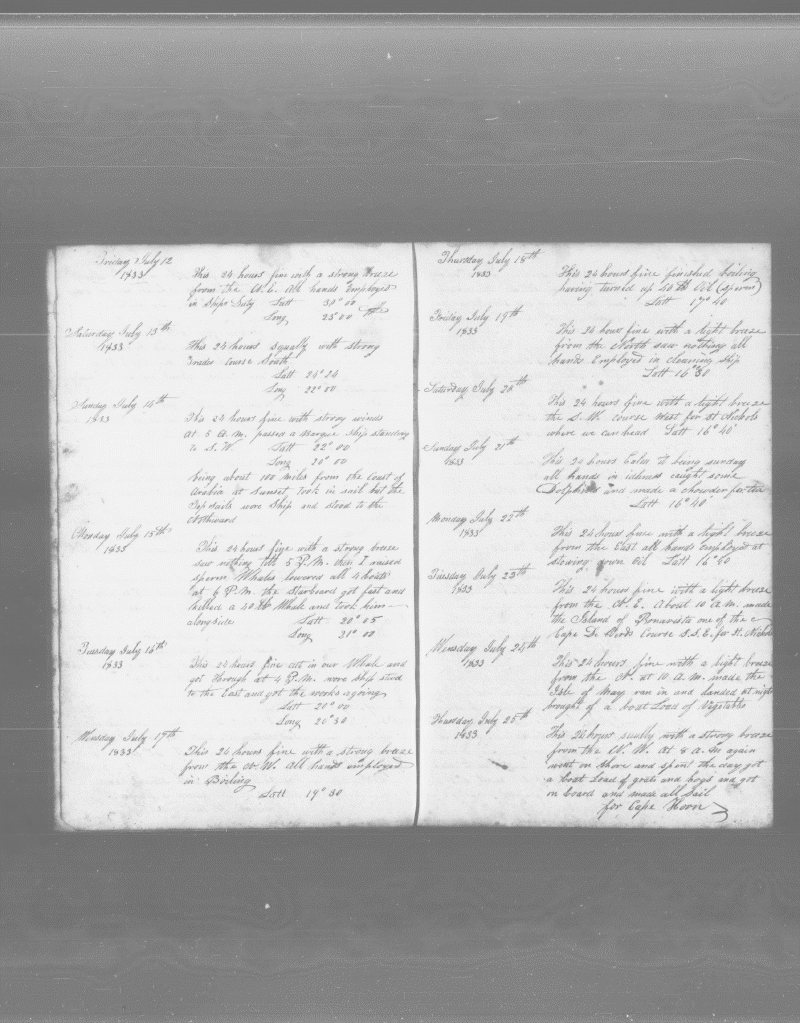 Friday July 12
1833
This 24 hours fine with a strong Breeze
from the N.E. All hands employed
in Ships Duty Latt 30° 00
Long 23° 00
Saturday July 13th
1833
This 24 hours squally with strong
Trades course South
Latt 24° 24
Long 22° 00
Sunday July 14th
1833
This 24 hours fine with strong winds
at 5 A.M. passed a Ship standing
to S.W. Latt 22° 00
Long 20° 00
being about 100 miles from the Coast of
Arabia at Sunset took in sail but the
Topsails wore Ship and stood to the
Northward
Monday July 15th
1833
This 24 hours fine with a strong breeze
saw nothing till 5 P.M. then I raised
sperm Whales lowered all 4 boats
at 6 P.M. the Starboard got fast and
killed a 40 Whale and took him
alongside Latt 20° 05
Long 21° 00
Tuesday July 16th
1833
This 24 hours fine cut in our Whale and
got through at 4 P.M. wore Ship stood
to the East and got the works agoing
Latt 20° 00
Long 20° 30
Wensday July 17th
1833
This 24 hours fine with a strong breeze
from the N.W. All hands employed
in Boiling
Latt 19° 30
Thursday July 18th
1833
This 24 hours fine finished boiling
having turned up 40 Oil (sperm)
Latt 17° 40
Friday July 19th
1833
This 24 hour fine with a light breeze
from the North saw nothing all
hands Employed in cleaning ship
Latt 16° 30
Saturday July 20th
This 24 hours fine with a light breeze
the S.W. course West for St Nichols
where we can head Latt 16° 40
Sunday July 21th
1833
This 24 hours Calm it being sunday
all hands in idleness caught some
Dolphins and made a chowder for tea
Latt 16° 40
Monday July 22th
1833
This 24 hours fine with a light breeze
from the East all hands employed at
stowing down Oil Latt 16° 40
Tuesday July 23th
1833
This 24 hours fine with a light breeze
from the N.E. About 10 A.M. made
the Island of Bonavista one of the
Cape De Verds Course S.S.E. for St. Nichols
Wensday July 24th
1833
This 24 hours fine with a light breeze
from the N. at 10 A.M. made the
Isle of May ran in and landed at night
bought of a boat Load of Vegetabls
Thursday July 25th
1833
This 24 hours with a strong breeze
from the N.W. At 8 A.M again
went on shore and spent the day got
a boat Load of goats and hogs and got
on board and made all sail
for Cape Horn